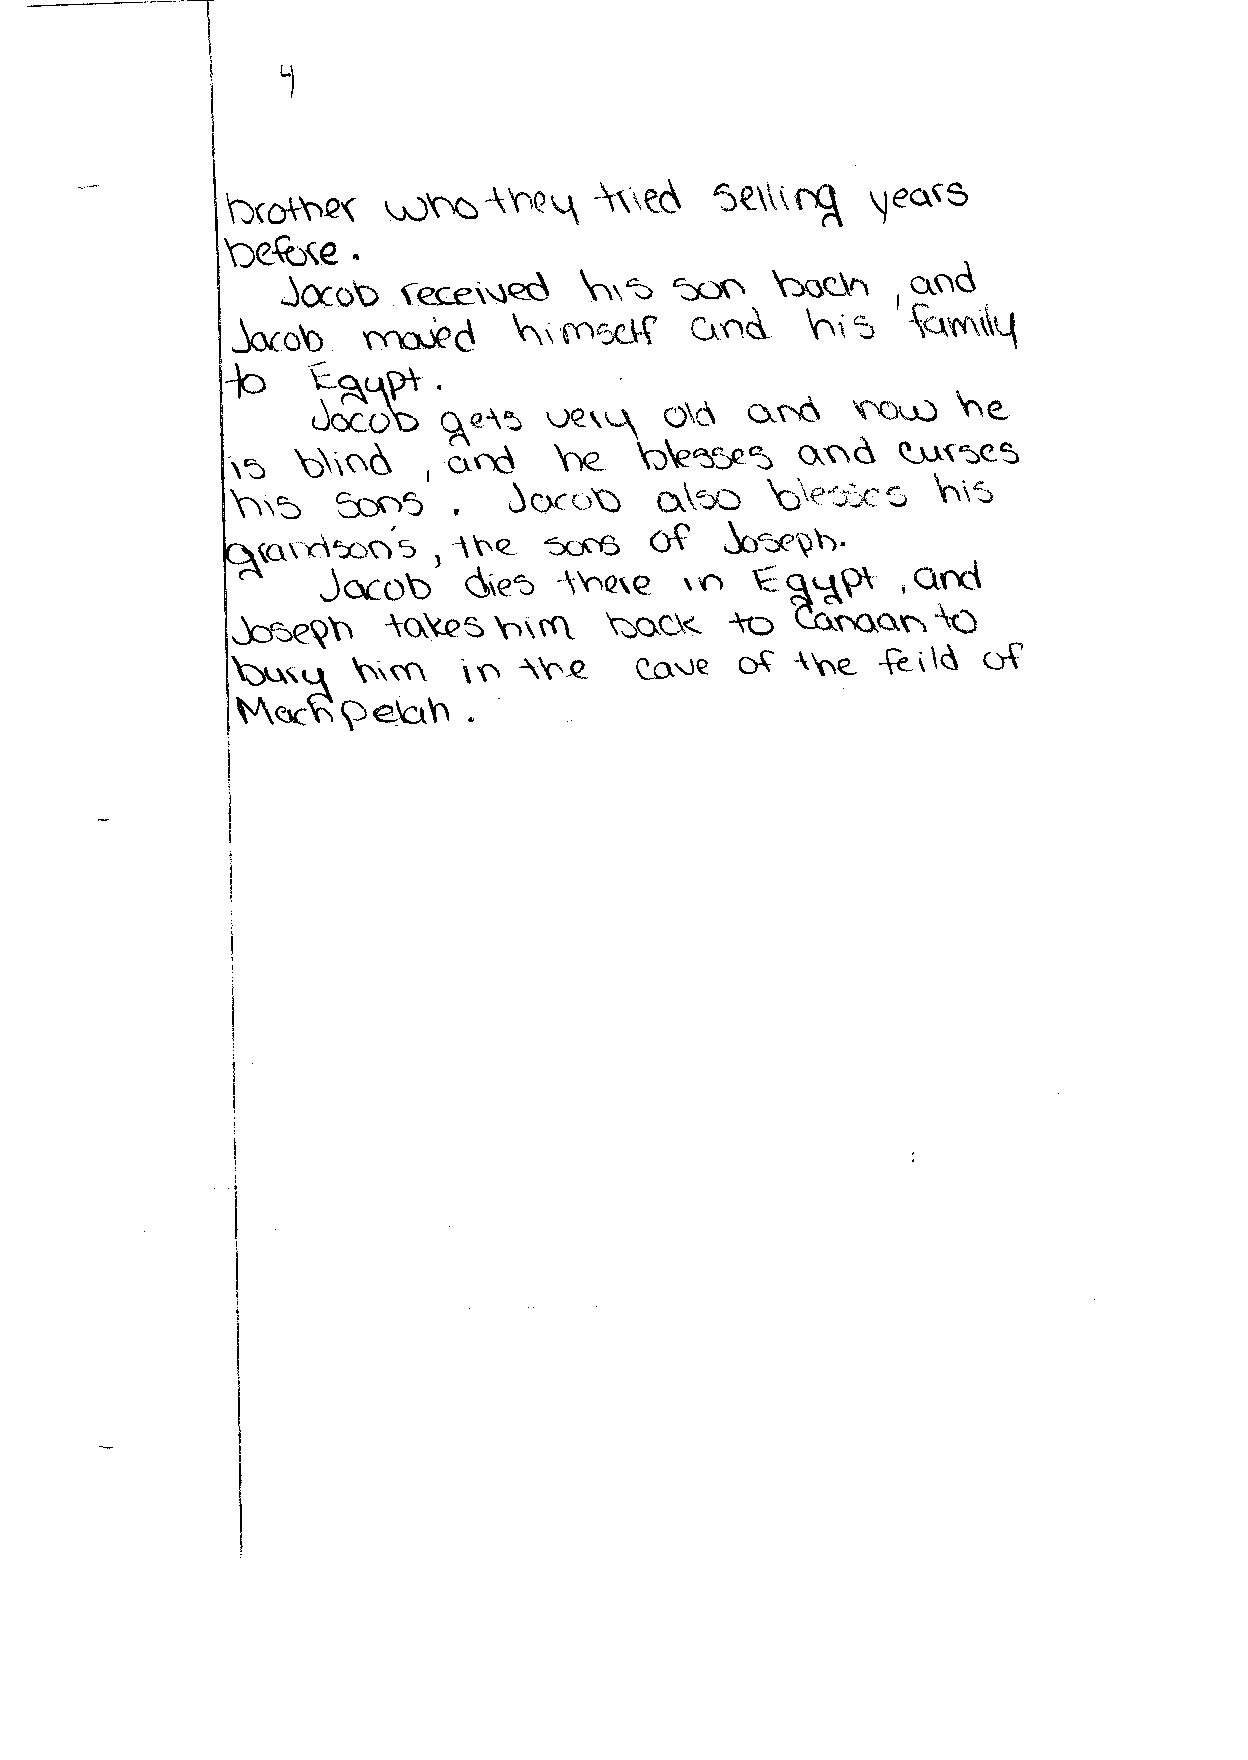 4
brother who they tried selling years
before.
Jacob received his son back, and
Jacob moved himself and his family
to Egypt.
Jacob gets very old and now he
is blind, and he blesses and curses
his sons. Jacob also blesses his
grandson's, the sons of Joseph.
Jacob dies there in Egypt, and
Joseph takes him back to Canaan to
bury him in the cave of the feild of
Machpelah.